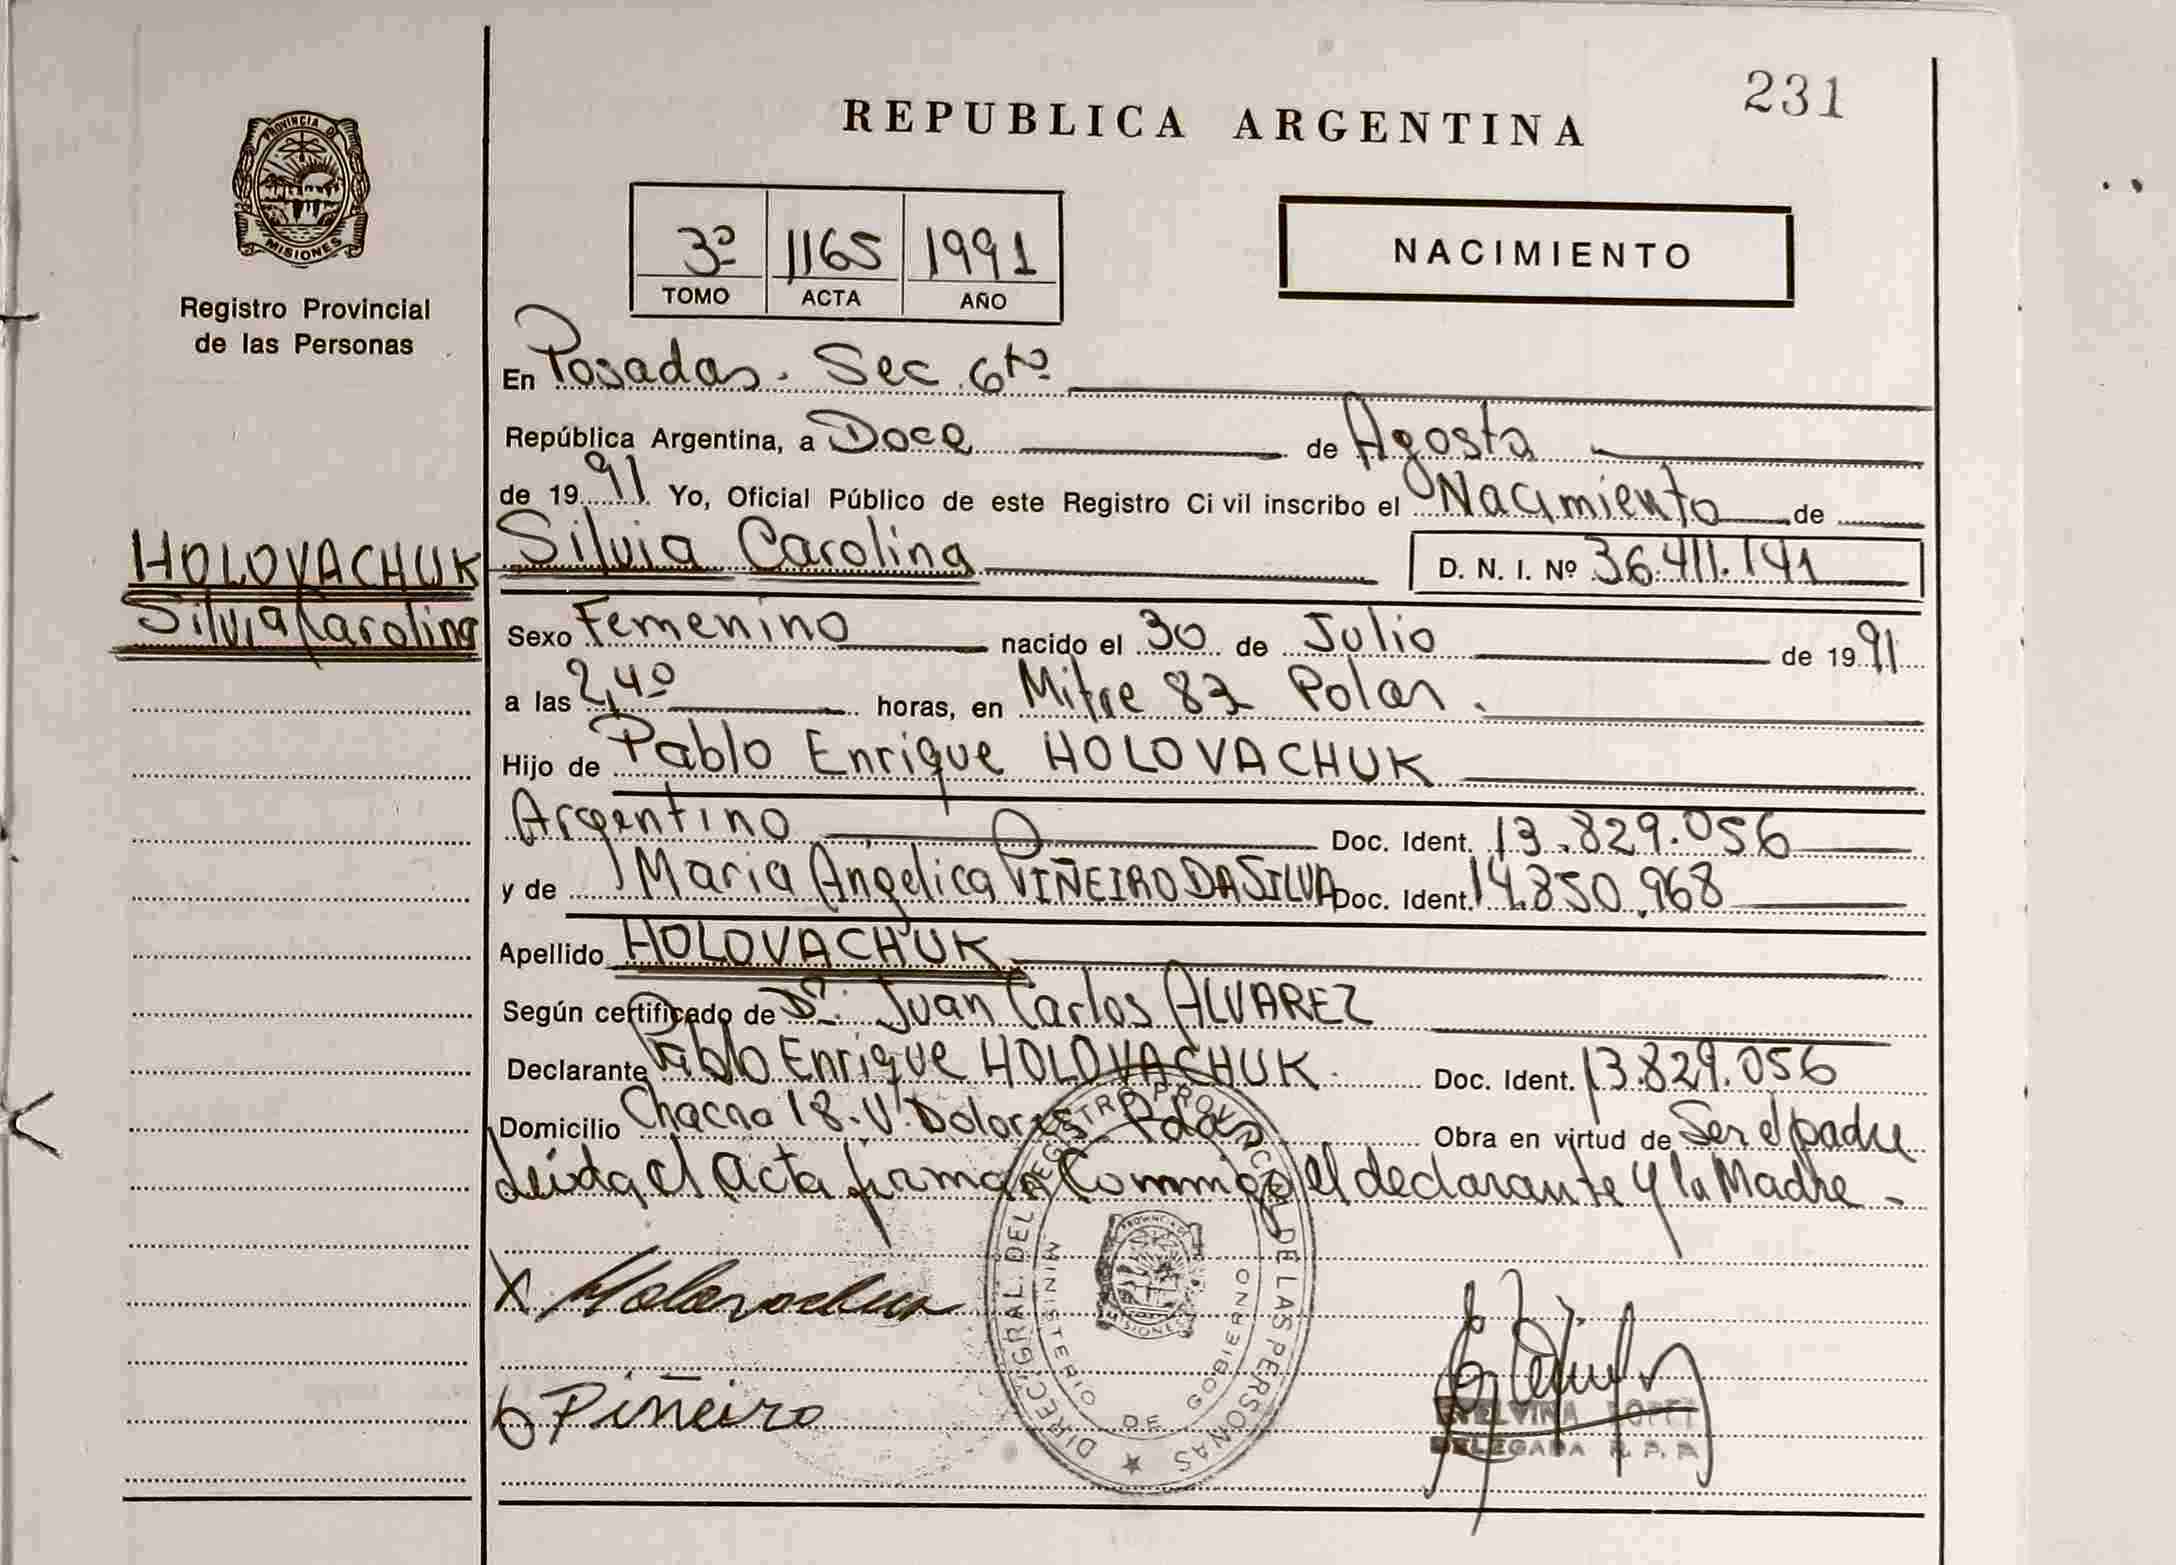 231
REPUBLICA ARGENTINA
PROVINCIA DE
MISIONES
Registro Provincial
de las Personas
3º 1165 1991
TOMO ACTA AÑO
NACIMIENTO
En Posadas. Sec. 6ta
República Argentina, a Doce de Agosto
de 1991 Yo, Oficial Público de este Registro Ci vil inscribo el Nacimiento de
HOLOVACHUK
Silvia Carolina
Silvia Carolina D. N. I. Nº 36.411.141
Sexo Femenino nacido el 30 de Julio de 1991
a las 2,40 horas, en Mitre 82 Pdas.
Hijo de Pablo Enrique HOLOVACHUK
Argentino Doc. Ident. 13.829.056
y de Maria Angelica PIÑEIRO DA SILVA Doc. Ident. 14.850.968
Apellido HOLOVACHUK
Según certificado de Dr. Juan Carlos ALVAREZ
Declarante Pablo Enrique HOLOVACHUK. Doc. Ident. 13.829.056
Domicilio Chacra 18. V. Dolores Pdas Obra en virtud de Ser el padre
Leida el Acta firman Conmigo el declarante y la Madre -
DIREC. GRAL. DEL REGISTRO PROVINCIAL DE LAS PERSONAS
MINISTERIO DE GOBIERNO
PROVINCIA DE
MISIONES
X Holovachuk
Piñeiro
ETELVINA LOPEZ
DELEGADA R. P. P.